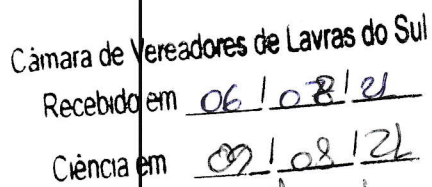 Câmara de Vereadores de Lavras do Sul
Recebido em 06 / 08 / 21
Ciência em 09 / 08 / 21